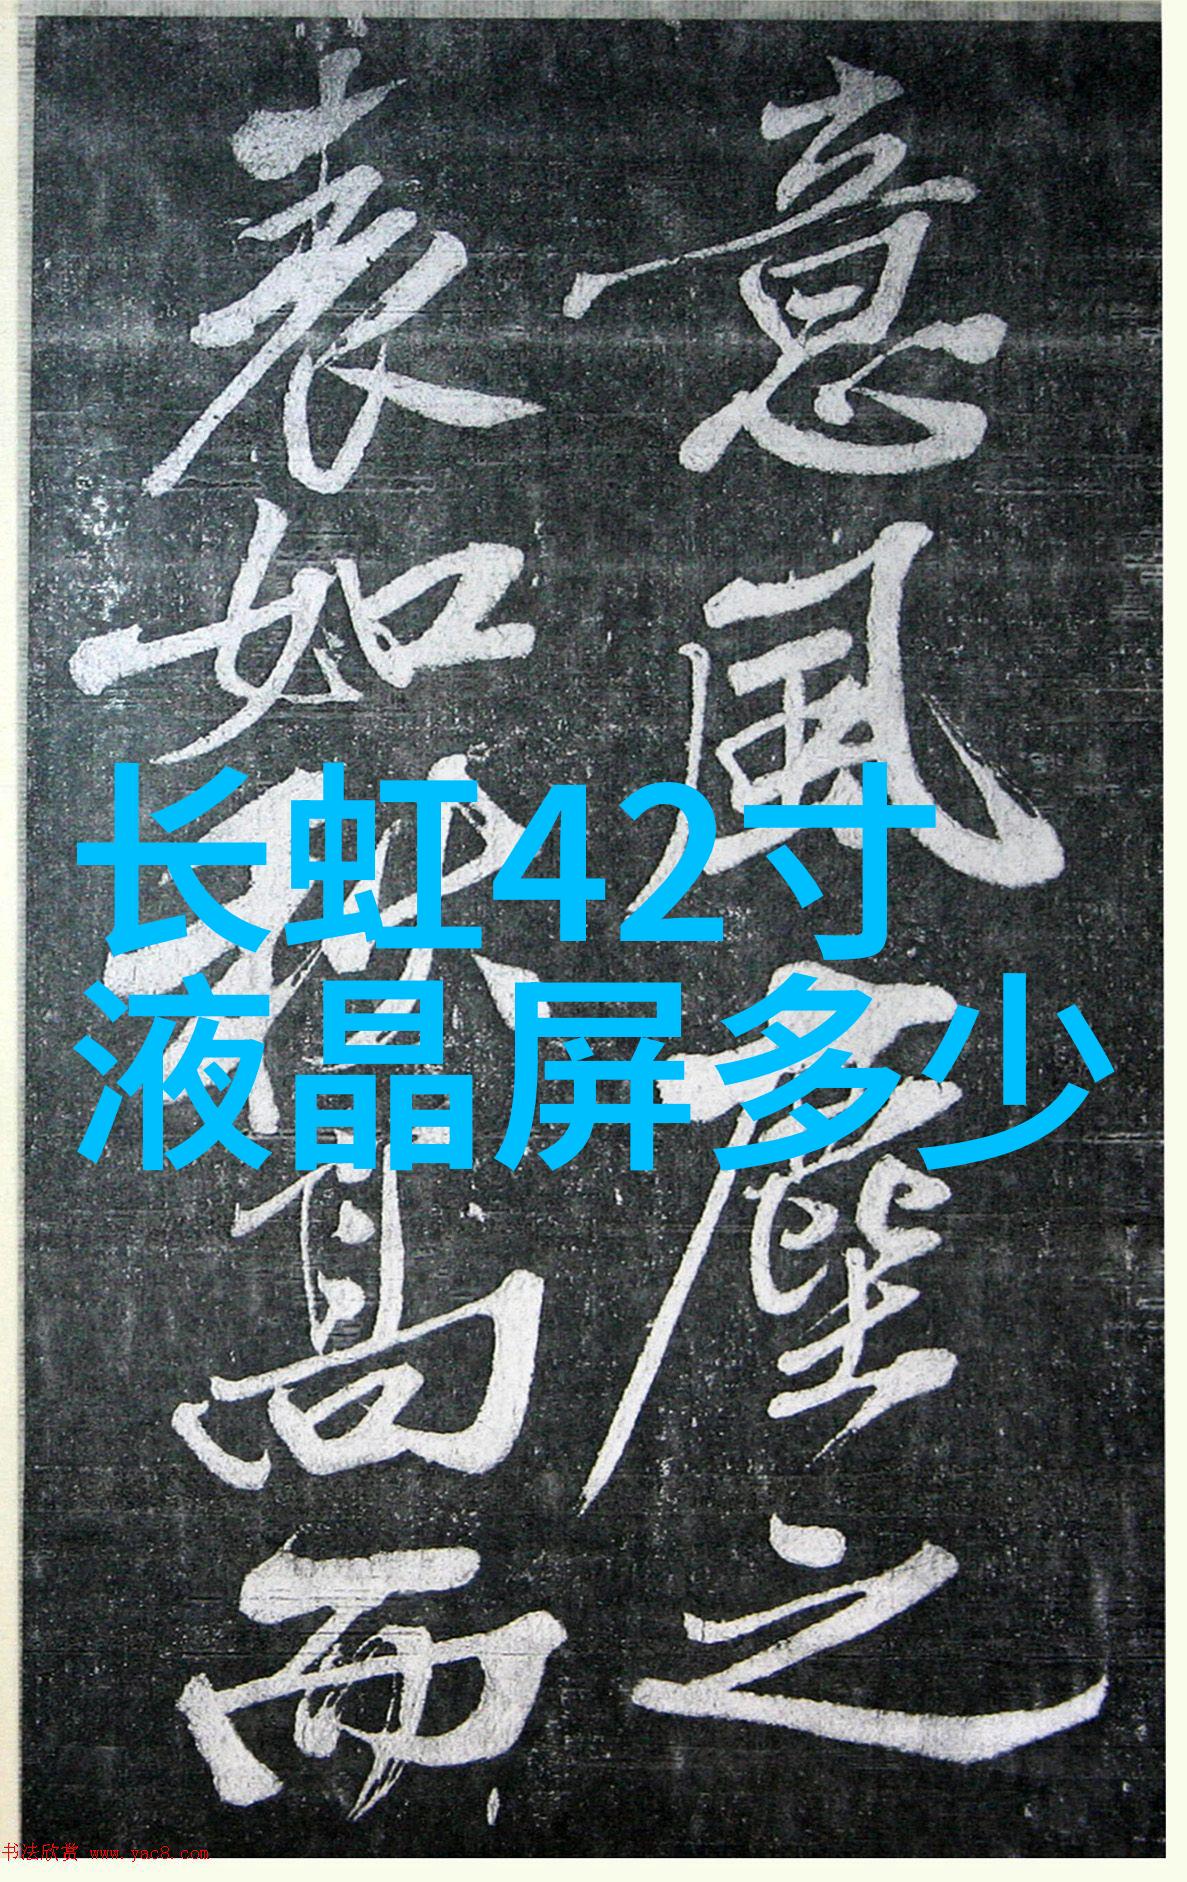 意風塵之
表如秋高而
长虹42寸
液晶屏多少
书法欣赏 www.yac8.com